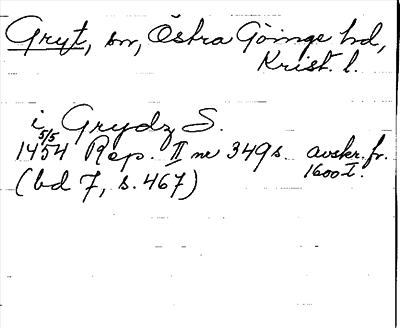 Gryt, sn, Östra Göinge hd,
Krist. l.
i Grydz S.
5/5
1454 Rep. II nr 349 s avskr. fr.
1600-t.
(bd 7, s. 467)